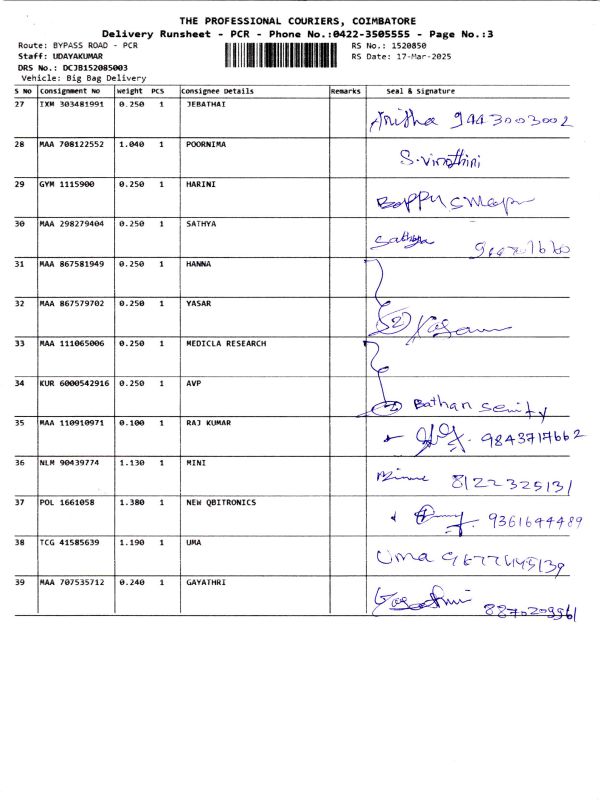 THE PROFESSIONAL COURIERS, COIMBATORE
Delivery Runsheet - PCR - Phone No.:0422-3505555 - Page No.:3
Route: BYPASS ROAD - PCR RS No.: 1520850
Staff: UDAYAKUMAR RS Date: 17-Mar-2025
DRS No.: DCJB152085003
Vehicle: Big Bag Delivery
S No Consignment No Weight PCS Consignee Details Remarks Seal & Signature
27 IXM 303481991 0.250 1 JEBATHAI
Anitha 9443003002
28 MAA 708122552 1.040 1 POORNIMA
S.Vinothini
29 GYM 1115900 0.250 1 HARINI
30 MAA 298279404 0.250 1 SATHYA
Sathya
31 MAA 867581949 0.250 1 HANNA
32 MAA 867579702 0.250 1 YASAR
33 MAA 111065006 0.250 1 MEDICLA RESEARCH
34 KUR 6000542916 0.250 1 AVP
Bathan
35 MAA 110910971 0.100 1 RAJ KUMAR
9843717662
36 NLM 90439774 1.130 1 MINI
8122325131
37 POL 1661058 1.380 1 NEW QBITRONICS
9361644489
38 TCG 41585639 1.190 1 UMA
Uma
39 MAA 707535712 0.240 1 GAYATHRI